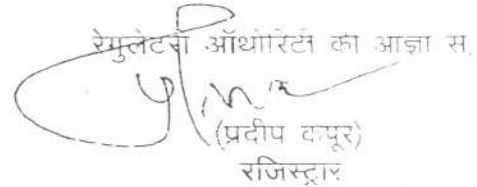 रेगुलेटरी ऑथोरिटी की आज्ञा स.
(प्रदीप कपूर)
रजिस्ट्रार